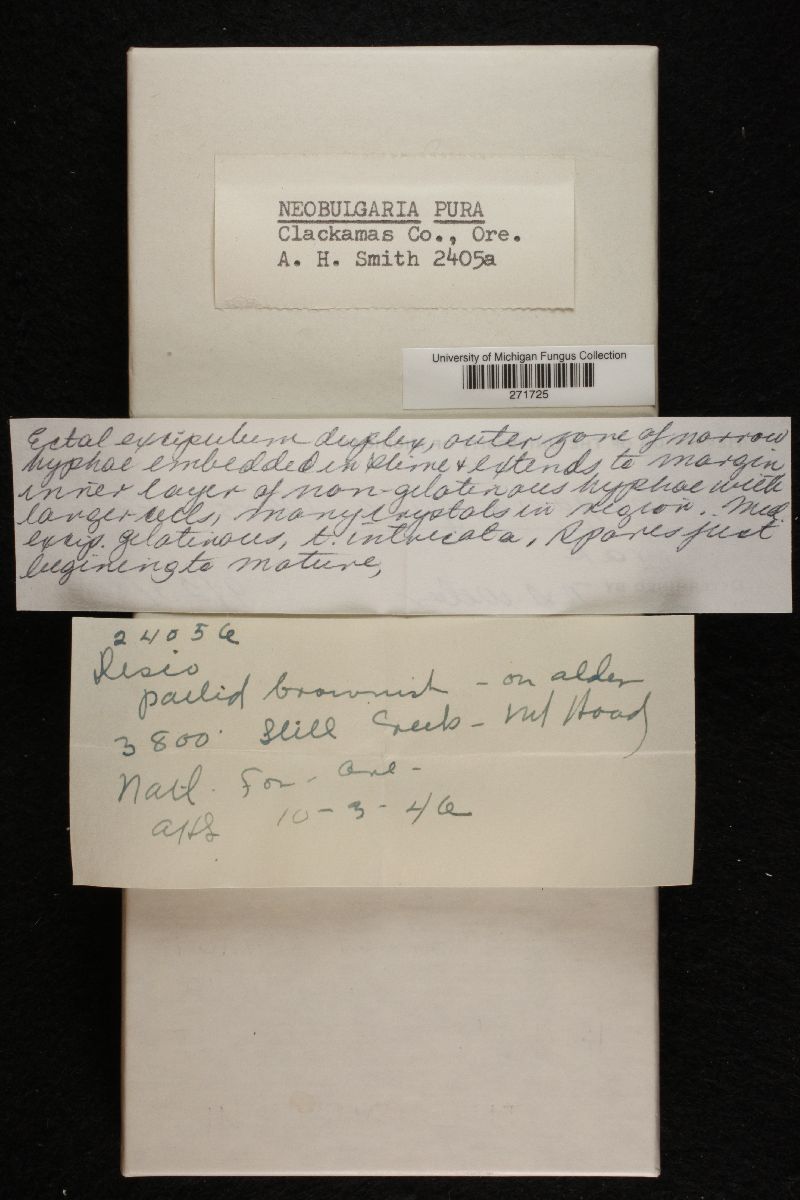 NEOBULGARIA PURA
Clackamas Co., Ore.
A. H. Smith 2405a
University of Michigan Fungus Collection
271725
Ectal excipulum duplex, outer zone of narrow
hyphae embedded in slime & extends to margin
inner layer of non-gelatinous hyphae with
larger cells, many crystals in region. Med.
excip. gelatinous, t. intricata, Spores just
begining to mature,
24056
pallid brownish - on alder
3800 Still Creek - Mt Hood
Natl. For. Ore-
AHS 10-3-46